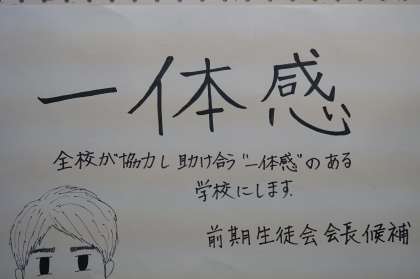 一体感
全校が協力し助け合う"一体感"のある
学校にします.
前期生徒会会長候補